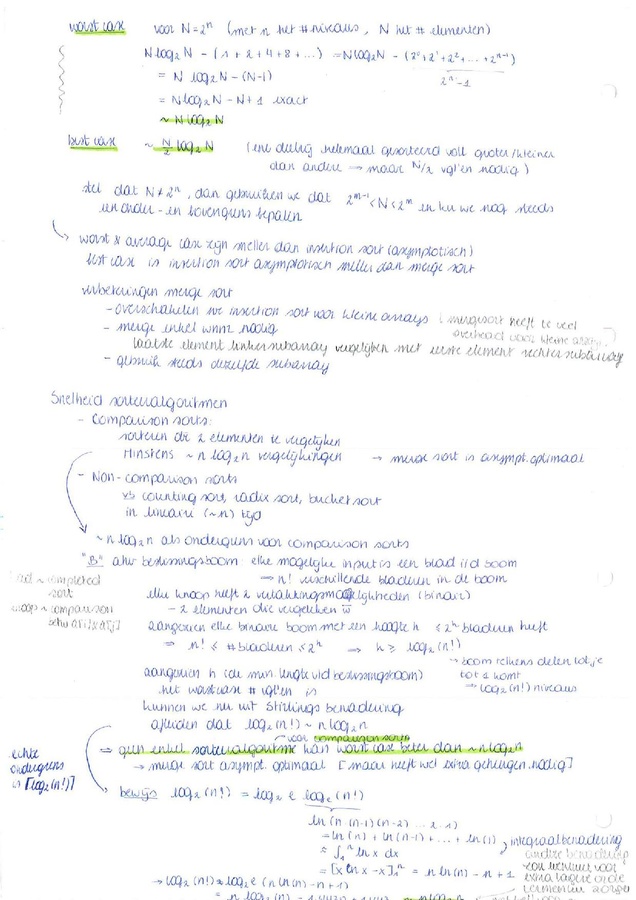 worst case voor N=2ⁿ (met n het # niveaus, N het # elementen)
N log₂N - (1 + 2 + 4 + 8 + ...) = N log₂N - (2⁰ + 2¹ + 2² + ... + 2ⁿ⁻¹)
2ⁿ-1
= N log₂N - (N-1)
= N log₂N - N + 1 exact
~ N log₂N
best case ~ N/2 log₂N (ene deelrij helemaal gesorteerd valt groter/kleiner
dan andere → maar N/2 vgl'en nodig)
stel dat N ≠ 2ⁿ, dan gebruiken we dat 2ᵐ⁻¹ < N < 2ᵐ en kn we nog steeds
een onder- en bovengrens bepalen
worst & average case zijn sneller dan insertion sort (asymptotisch)
best case is insertion sort asymptotisch sneller dan merge sort
verbeteringen merge sort
- overschakelen nr insertion sort voor kleine arrays (mergesort heeft te veel
overhead voor kleine
- merge enkel wnnr nodig
laatste element linkersubarray vergelijken met eerste element rechtersubarray
- gebruik steeds dezelfde subarray
Snelheid sorteeralgoritmen
- Comparison sorts:
sorteren die 2 elementen te vergelijken
Minstens ~ n log₂n vergelijkingen → merge sort is asympt. optimaal
- Non-comparison sorts
vb counting sort, radix sort, bucket sort
in lineaire (~n) tijd
~ n log₂n als ondergrens voor comparison sorts
"B" ahv beslissingsboom: elke mogelijke input is een blad i/d boom
⇒ n! verschillende bladeren in de boom
~ completed
sort
knoop ~ comparison
elke knoop heeft 2 vertakkingsmogelijkheden (binair)
- 2 elementen die vergeleken w̄
aangezien elke binaire boom met een hoogte h ≤ 2ʰ bladeren heeft
⇒ n! ≤ # bladeren ≤ 2ʰ ⇒ h ≥ log₂(n!)
boom telkens delen tot je
tot 1 komt
⇒ log₂(n!) niveaus
aangezien h (de min. lengte v/d beslissingsboom)
het worstcase # vgl'en is
kunnen we nu uit Stirlings benadering
afleiden dat log₂(n!) ~ n log₂n
voor comparison sorts
⇒ geen enkel sorteeralgoritme kan worst case beter dan ~ n log₂n
→ merge sort asympt. optimaal [maar heeft wel extra geheugen nodig]
echte
ondergrens
is ⌈log₂(n!)⌉
bewijs log₂(n!) = log₂ e logₑ(n!)
ln(n·(n-1)(n-2) ... 2·1)
= ln(n) + ln(n-1) + ... + ln(1)
integraalbenadering
≈ ∫₁ⁿ ln x dx
= [x ln x - x]₁ⁿ = n ln(n) - n + 1
andere benadering
→ log₂(n!) ≈ log₂ e (n ln(n) - n + 1)